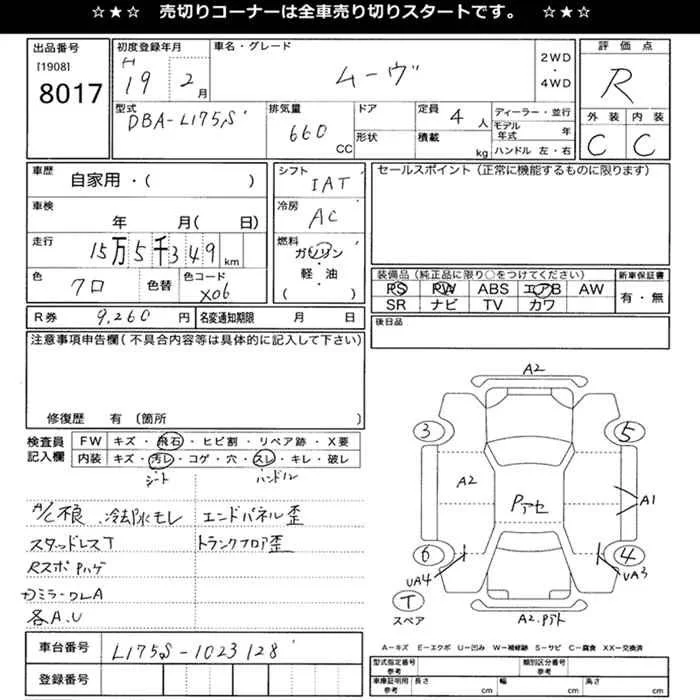 ☆★☆ 売切りコーナーは全車売り切りスタートです。 ☆★☆
出品番号
[1908]
8017
初度登録年月
H
19 年 2 月
車名・グレード
ムーヴ
2WD
・
4WD
評価点
R
外装 内装
C C
型式
DBA-L175S
排気量
660 CC
ドア
形状
定員 4 人
積載 kg
ディーラー・並行
モデル年式 年
ハンドル 左・右
車歴
自家用・( )
車検
年 月( 日)
走行
15万5千349 km
色
クロ
色替
色コード
X06
シフト
IAT
冷房
AC
燃料
ガソリン
・
軽・油
( )
セールスポイント(正常に機能するものに限ります)
装備品(純正品に限り○をつけてください)
PS PW ABS エアB AW
SR ナビ TV カワ
新車保証書
有・無
後日品
R券 9,260 円
名変通知期限 月 日
注意事項申告欄(不具合内容等は具体的に記入して下さい)
修復歴 有(箇所 )
検査員
記入欄
FW キズ・飛石・ヒビ割・リペア跡・X要
内装 キズ・汚レ・コゲ・穴・スレ・キレ・破レ
シート ハンドル
A/C不良、冷却水モレ
エンドパネル歪
スタッドレスT
トランクフロア歪
RスポPハゲ
ミラーワレA
各A.U
車台番号 L175S-1023128
登録番号
A2
3
5
A2
Pアセ
A1
6
4
UA4
UA3
T
スペア
A2.Pデト
A-キズ E-エクボ U-凹み W-補修跡 S-サビ C-腐食 XX-交換済
型式指定番号
参考
類別区分番号
参考
車庫証明用
参考
長さ cm 幅 cm 高さ cm